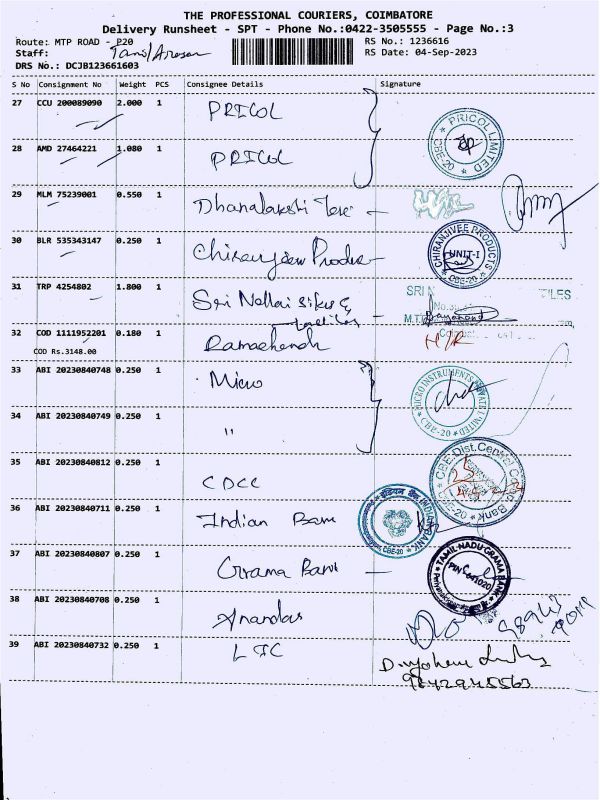 THE PROFESSIONAL COURIERS, COIMBATORE
Delivery Runsheet - SPT - Phone No.:0422-3505555 - Page No.:3
Route: MTP ROAD - P20
RS No.: 1236616
Staff:
RS Date: 04-Sep-2023
DRS No.: DCJB123661603
S No Consignment No Weight PCS Consignee Details Signature
27 CCU 200089090 2.000 1 PRICOL
28 AMD 27464221 1.080 1 PRICOL
PRICOL LIMITED CBE-20
29 MLM 75239001 0.550 1 Dhanalakshi
30 BLR 535343147 0.250 1 Chiranjeev
CHIRANJIVEE PRODUCTS UNIT-I CBE-20
31 TRP 4254802 1.800 1 Sri Nellai silks &
32 COD 1111952201 0.180 1
COD Rs.3148.00
33 ABI 20230840748 0.250 1 Micro
MICRO INSTRUMENTS PRIVATE LIMITED CBE-20
34 ABI 20230840749 0.250 1 "
35 ABI 20230840812 0.250 1 CDCC
CBE-Dist. Central Bank
36 ABI 20230840711 0.250 1 Indian Bank
INDIAN BANK CBE-20
37 ABI 20230840807 0.250 1 Grama Bank
TAMIL NADU GRAMA BANK PIN 641020
38 ABI 20230840708 0.250 1 Anandas
39 ABI 20230840732 0.250 1 LIC
9842945563